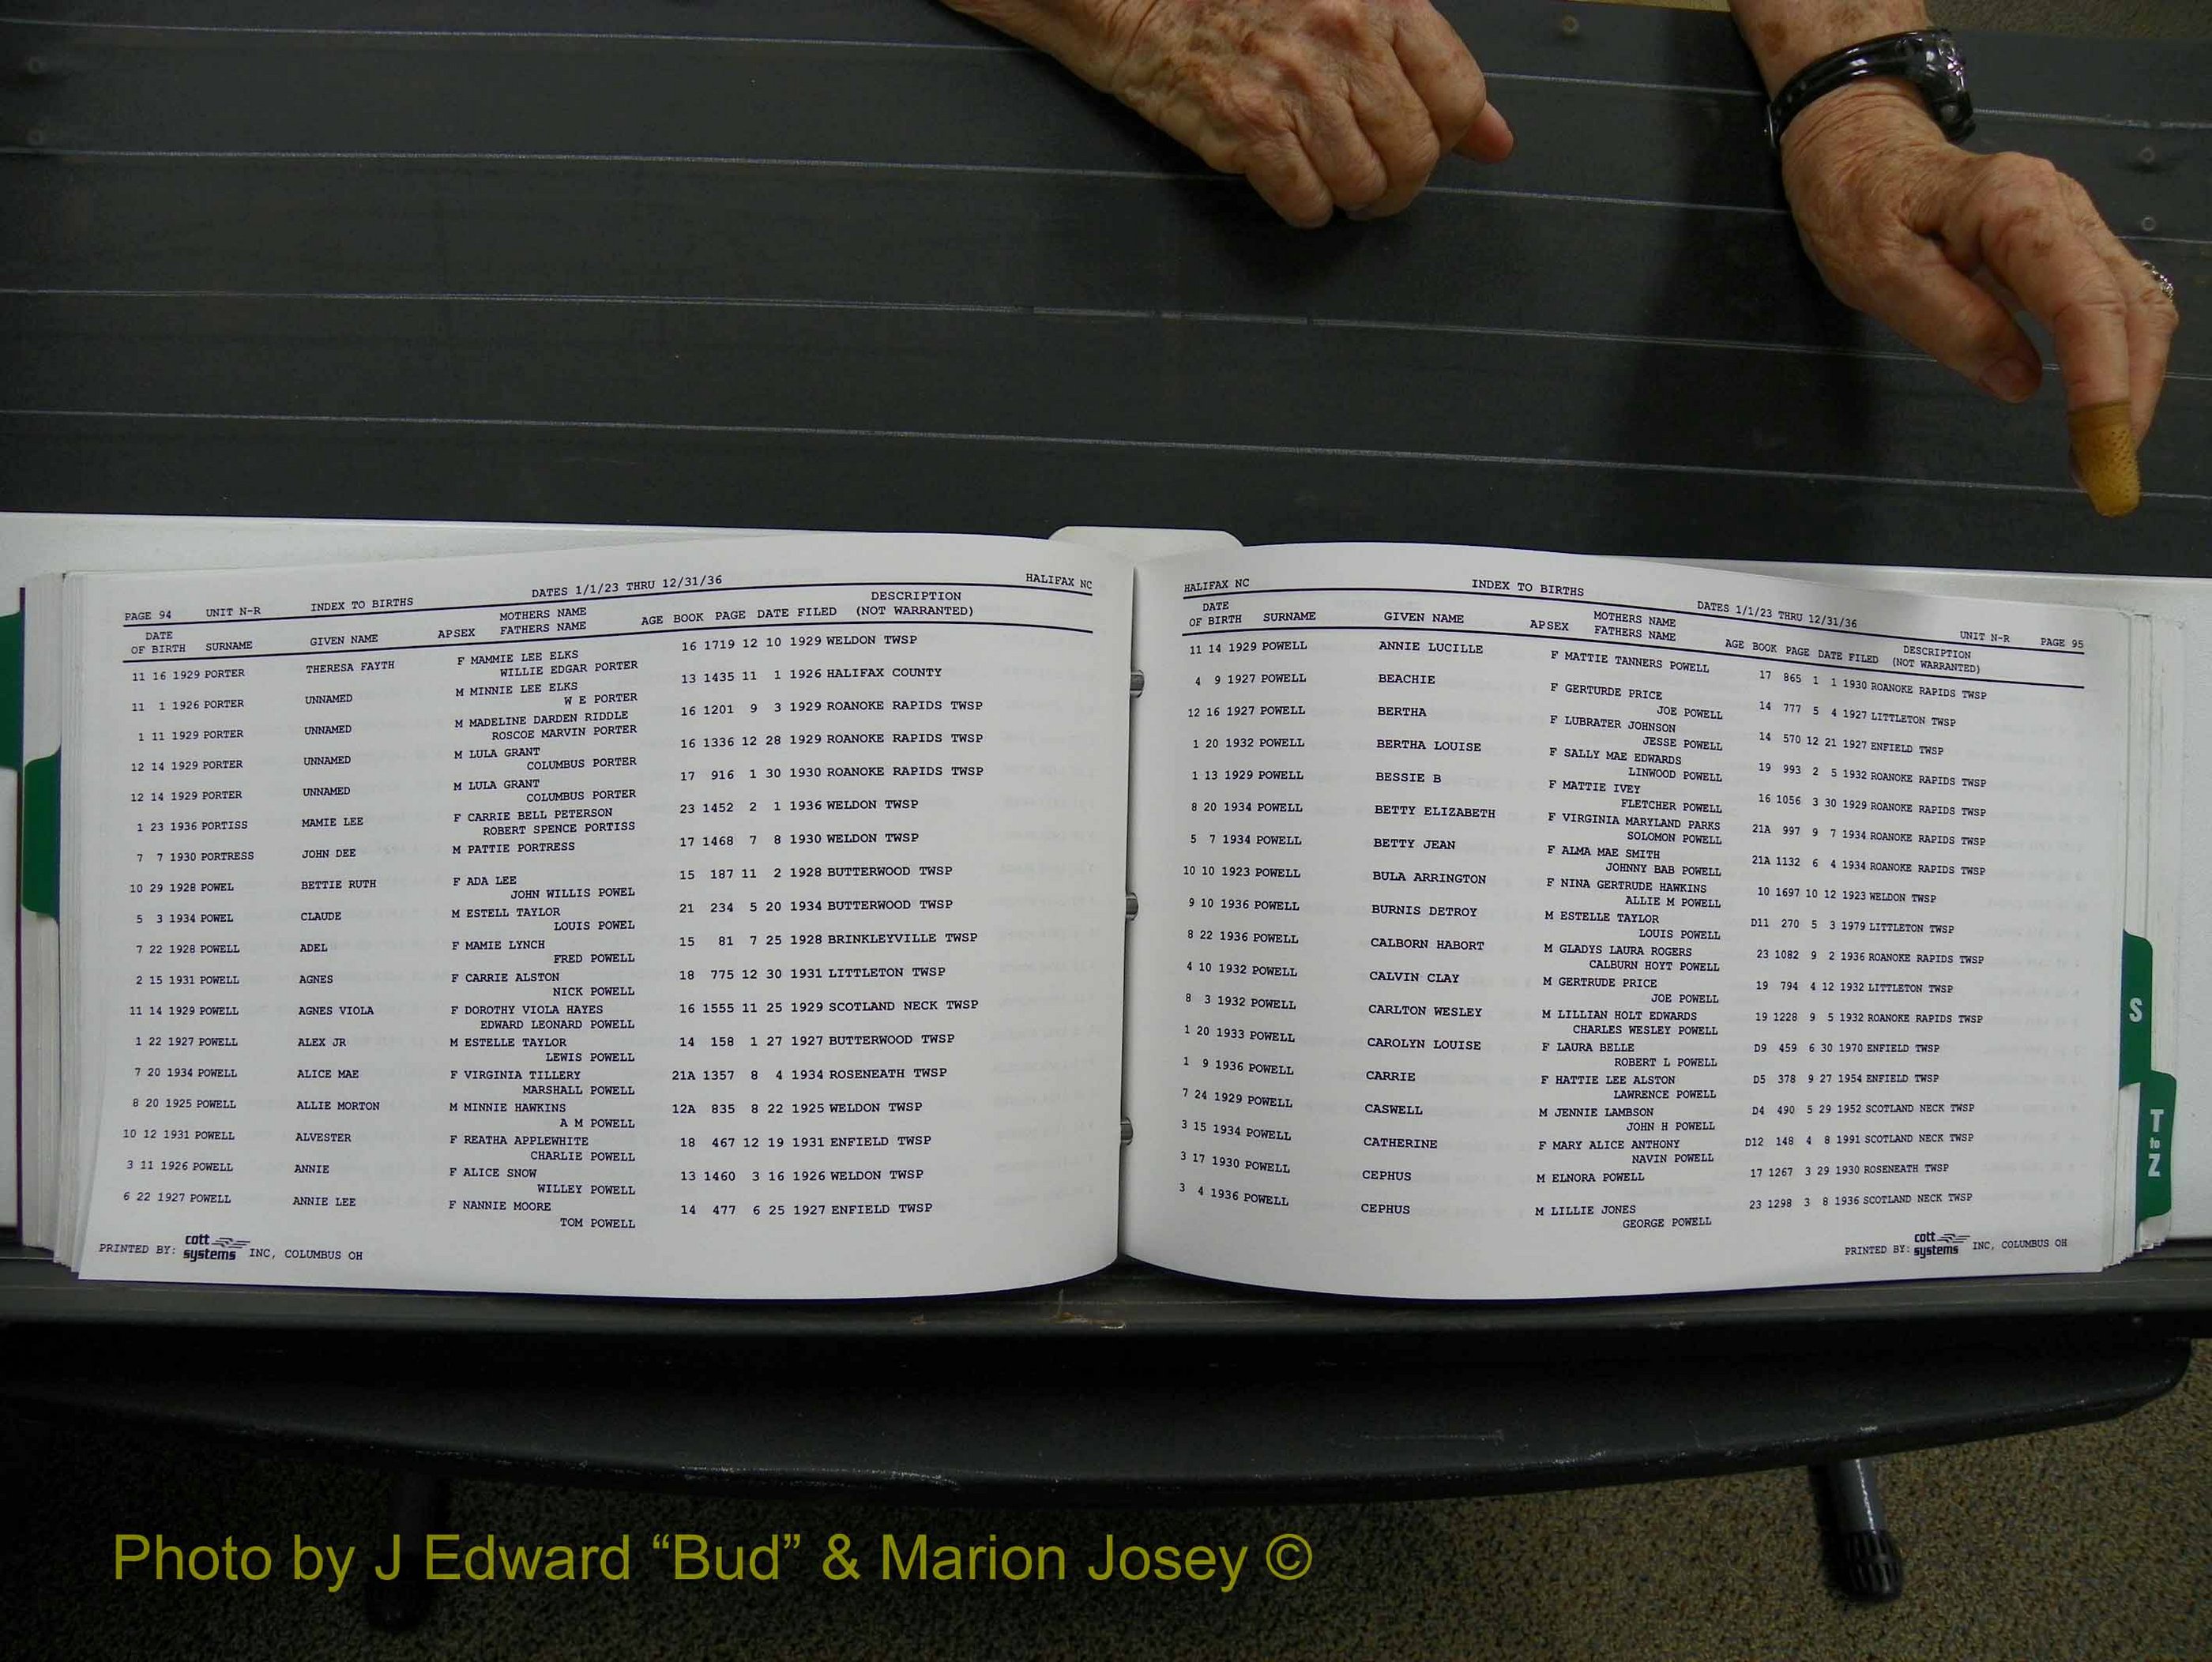 PAGE 94 UNIT N-R INDEX TO BIRTHS DATES 1/1/23 THRU 12/31/36 HALIFAX NC
DATE MOTHERS NAME DESCRIPTION
OF BIRTH SURNAME GIVEN NAME APSEX FATHERS NAME AGE BOOK PAGE DATE FILED (NOT WARRANTED)
11 16 1929 PORTER THERESA FAYTH F MAMMIE LEE ELKS 16 1719 12 10 1929 WELDON TWSP
WILLIE EDGAR PORTER
11 1 1926 PORTER UNNAMED M MINNIE LEE ELKS 13 1435 11 1 1926 HALIFAX COUNTY
W E PORTER
1 11 1929 PORTER UNNAMED M MADELINE DARDEN RIDDLE 16 1201 9 3 1929 ROANOKE RAPIDS TWSP
ROSCOE MARVIN PORTER
12 14 1929 PORTER UNNAMED M LULA GRANT 16 1336 12 28 1929 ROANOKE RAPIDS TWSP
COLUMBUS PORTER
12 14 1929 PORTER UNNAMED M LULA GRANT 17 916 1 30 1930 ROANOKE RAPIDS TWSP
COLUMBUS PORTER
1 23 1936 PORTISS MAMIE LEE F CARRIE BELL PETERSON 23 1452 2 1 1936 WELDON TWSP
ROBERT SPENCE PORTISS
7 7 1930 PORTRESS JOHN DEE M PATTIE PORTRESS 17 1468 7 8 1930 WELDON TWSP
10 29 1928 POWEL BETTIE RUTH F ADA LEE 15 187 11 2 1928 BUTTERWOOD TWSP
JOHN WILLIS POWEL
5 3 1934 POWEL CLAUDE M ESTELL TAYLOR 21 234 5 20 1934 BUTTERWOOD TWSP
LOUIS POWEL
7 22 1928 POWELL ADEL F MAMIE LYNCH 15 81 7 25 1928 BRINKLEYVILLE TWSP
FRED POWELL
2 15 1931 POWELL AGNES F CARRIE ALSTON 18 775 12 30 1931 LITTLETON TWSP
NICK POWELL
11 14 1929 POWELL AGNES VIOLA F DOROTHY VIOLA HAYES 16 1555 11 25 1929 SCOTLAND NECK TWSP
EDWARD LEONARD POWELL
1 22 1927 POWELL ALEX JR M ESTELLE TAYLOR 14 158 1 27 1927 BUTTERWOOD TWSP
LEWIS POWELL
7 20 1934 POWELL ALICE MAE F VIRGINIA TILLERY 21A 1357 8 4 1934 ROSENEATH TWSP
MARSHALL POWELL
8 20 1925 POWELL ALLIE MORTON M MINNIE HAWKINS 12A 835 8 22 1925 WELDON TWSP
A M POWELL
10 12 1931 POWELL ALVESTER F REATHA APPLEWHITE 18 467 12 19 1931 ENFIELD TWSP
CHARLIE POWELL
3 11 1926 POWELL ANNIE F ALICE SNOW 13 1460 3 16 1926 WELDON TWSP
WILLEY POWELL
6 22 1927 POWELL ANNIE LEE F NANNIE MOORE 14 477 6 25 1927 ENFIELD TWSP
TOM POWELL
PRINTED BY: cott systems INC, COLUMBUS OH
HALIFAX NC INDEX TO BIRTHS DATES 1/1/23 THRU 12/31/36 UNIT N-R PAGE 95
DATE MOTHERS NAME DESCRIPTION
OF BIRTH SURNAME GIVEN NAME APSEX FATHERS NAME AGE BOOK PAGE DATE FILED (NOT WARRANTED)
11 14 1929 POWELL ANNIE LUCILLE F MATTIE TANNERS POWELL 17 865 1 1 1930 ROANOKE RAPIDS TWSP
4 9 1927 POWELL BEACHIE F GERTURDE PRICE 14 777 5 4 1927 LITTLETON TWSP
JOE POWELL
12 16 1927 POWELL BERTHA F LUBRATER JOHNSON 14 570 12 21 1927 ENFIELD TWSP
JESSE POWELL
1 20 1932 POWELL BERTHA LOUISE F SALLY MAE EDWARDS 19 993 2 5 1932 ROANOKE RAPIDS TWSP
LINWOOD POWELL
1 13 1929 POWELL BESSIE B F MATTIE IVEY 16 1056 3 30 1929 ROANOKE RAPIDS TWSP
FLETCHER POWELL
8 20 1934 POWELL BETTY ELIZABETH F VIRGINIA MARYLAND PARKS 21A 997 9 7 1934 ROANOKE RAPIDS TWSP
SOLOMON POWELL
5 7 1934 POWELL BETTY JEAN F ALMA MAE SMITH 21A 1132 6 4 1934 ROANOKE RAPIDS TWSP
JOHNNY BAB POWELL
10 10 1923 POWELL BULA ARRINGTON F NINA GERTRUDE HAWKINS 10 1697 10 12 1923 WELDON TWSP
ALLIE M POWELL
9 10 1936 POWELL BURNIS DETROY M ESTELLE TAYLOR D11 270 5 3 1979 LITTLETON TWSP
LOUIS POWELL
8 22 1936 POWELL CALBORN HABORT M GLADYS LAURA ROGERS 23 1082 9 2 1936 ROANOKE RAPIDS TWSP
CALBURN HOYT POWELL
4 10 1932 POWELL CALVIN CLAY M GERTRUDE PRICE 19 794 4 12 1932 LITTLETON TWSP
JOE POWELL
8 3 1932 POWELL CARLTON WESLEY M LILLIAN HOLT EDWARDS 19 1228 9 5 1932 ROANOKE RAPIDS TWSP
CHARLES WESLEY POWELL
1 20 1933 POWELL CAROLYN LOUISE F LAURA BELLE D9 459 6 30 1970 ENFIELD TWSP
ROBERT L POWELL
1 9 1936 POWELL CARRIE F HATTIE LEE ALSTON D5 378 9 27 1954 ENFIELD TWSP
LAWRENCE POWELL
7 24 1929 POWELL CASWELL M JENNIE LAMBSON D4 490 5 29 1952 SCOTLAND NECK TWSP
JOHN H POWELL
3 15 1934 POWELL CATHERINE F MARY ALICE ANTHONY D12 148 4 8 1991 SCOTLAND NECK TWSP
NAVIN POWELL
3 17 1930 POWELL CEPHUS M ELNORA POWELL 17 1267 3 29 1930 ROSENEATH TWSP
3 4 1936 POWELL CEPHUS M LILLIE JONES 23 1298 3 8 1936 SCOTLAND NECK TWSP
GEORGE POWELL
PRINTED BY: cott systems INC, COLUMBUS OH
S
T
to
Z
Photo by J Edward “Bud” & Marion Josey ©